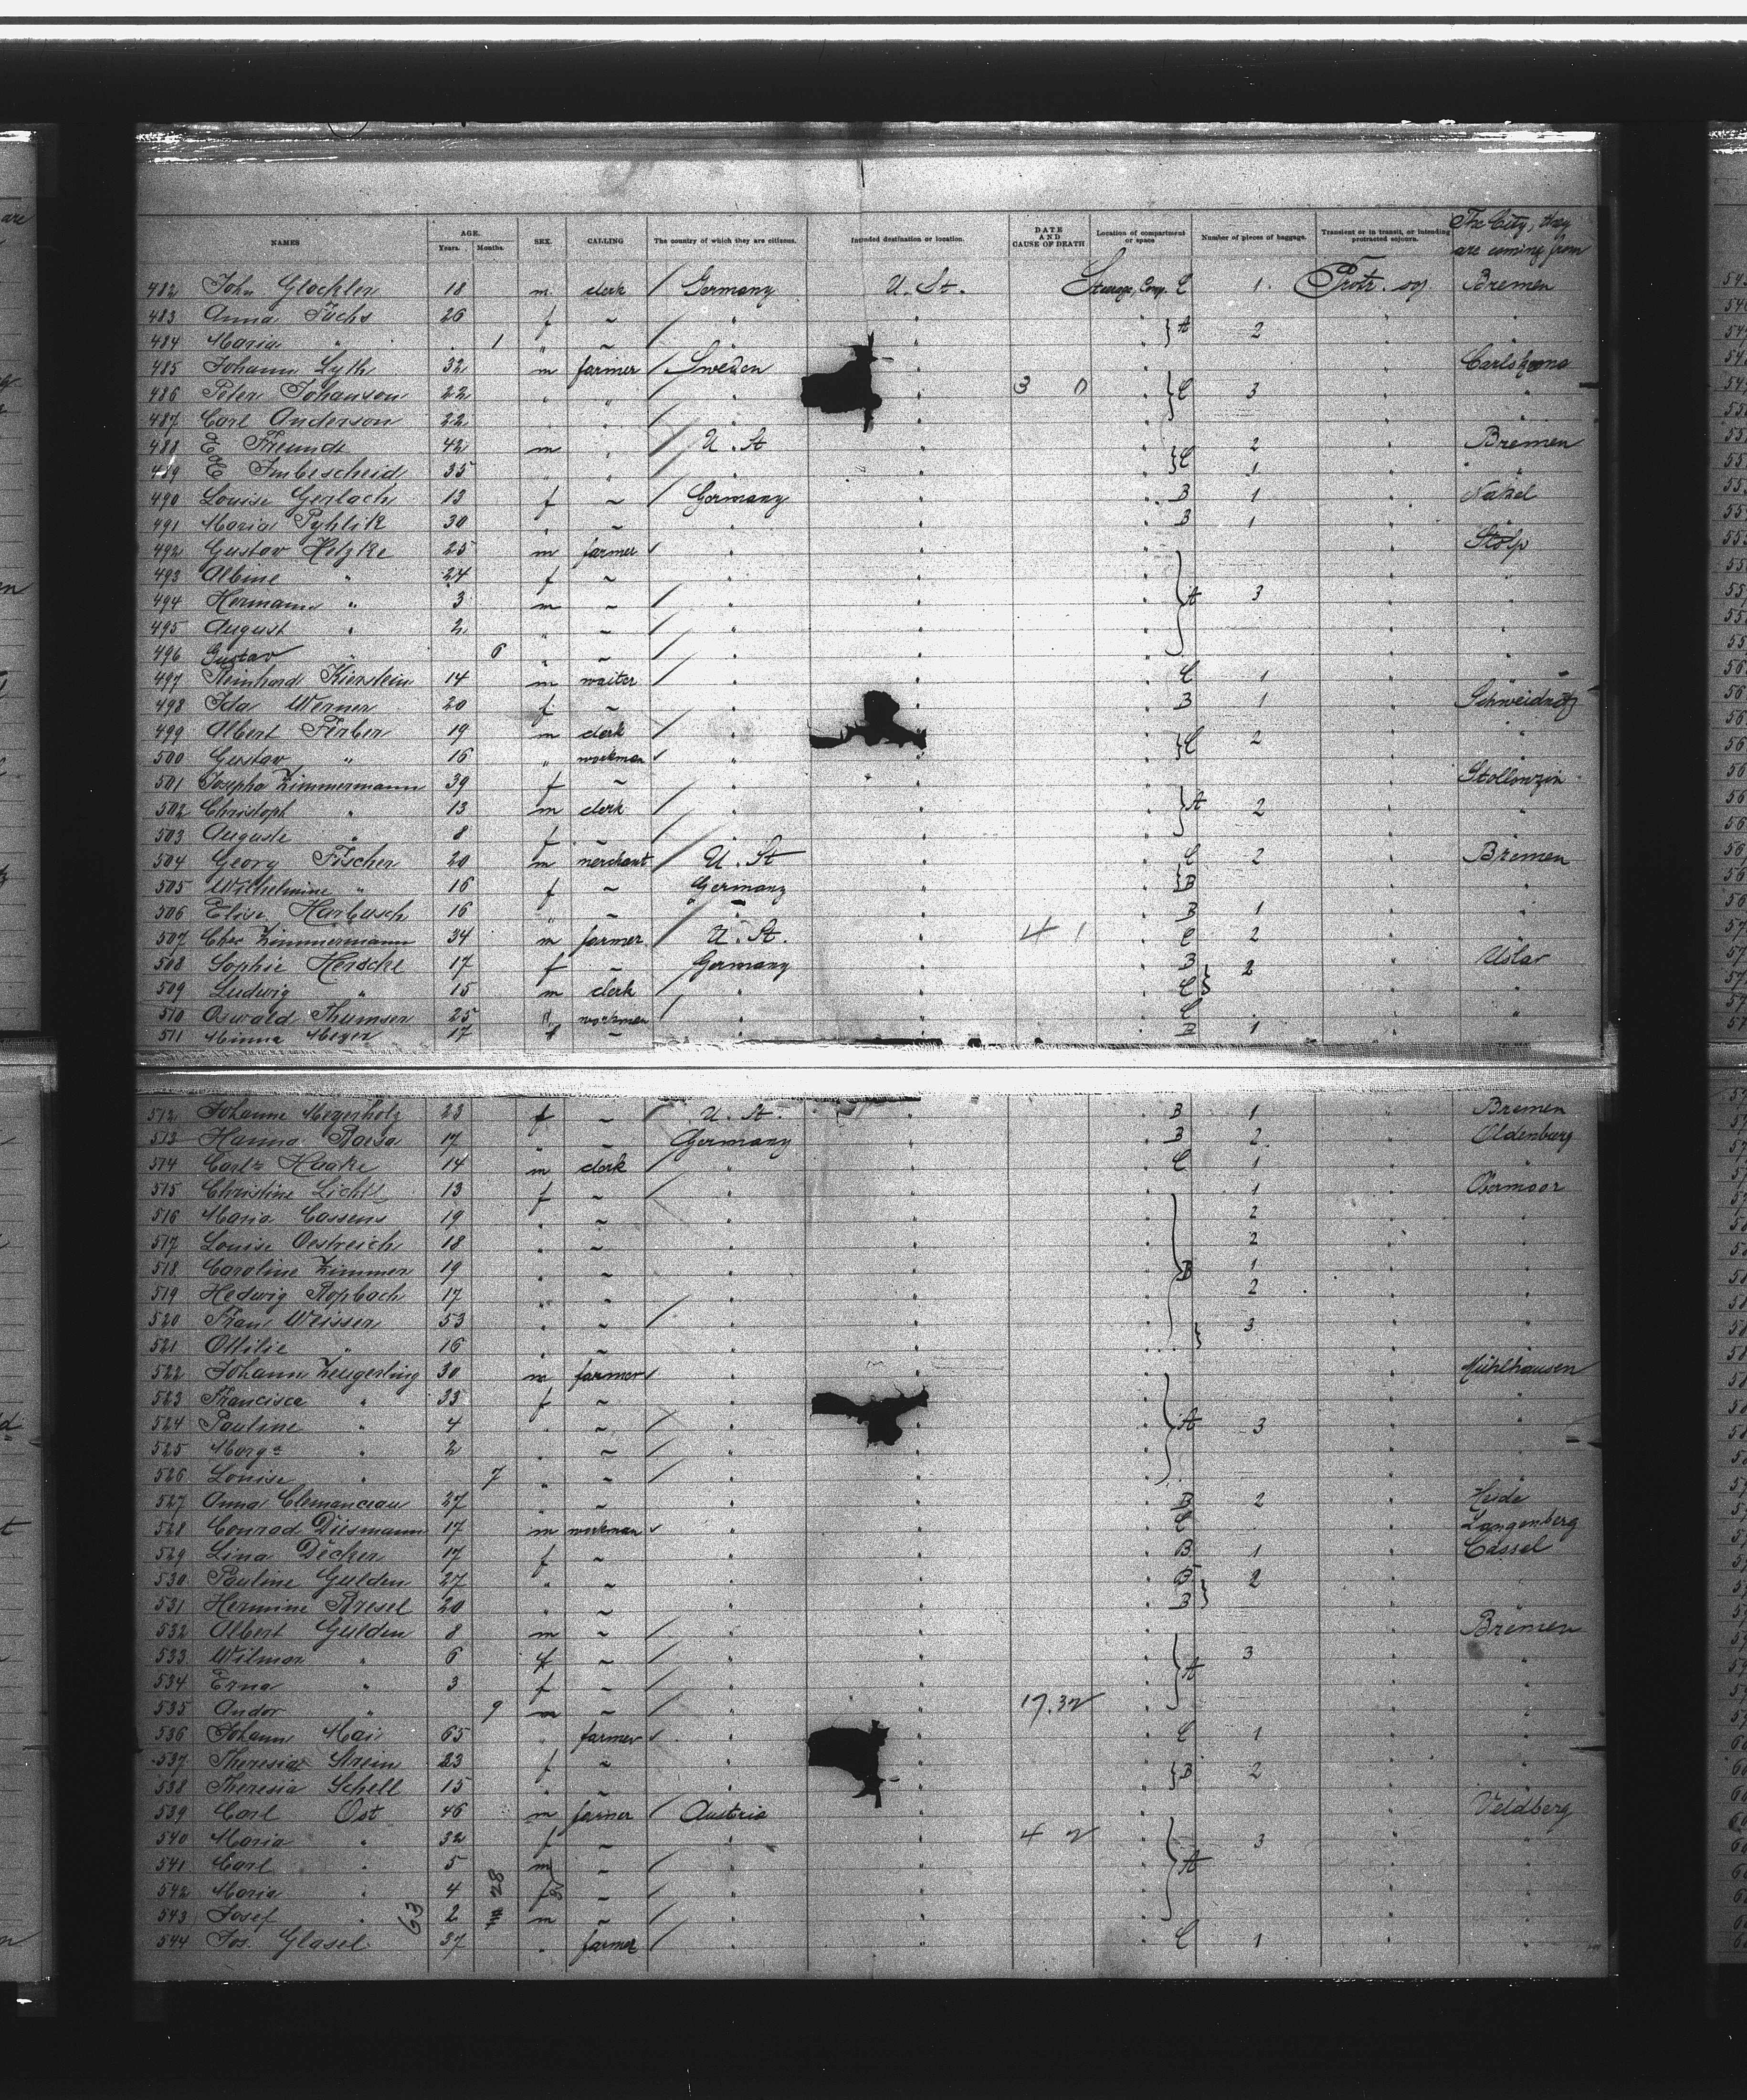 NAMES AGE. Years. Months. SEX. CALLING The country of which they are citizens. Intended destination or location. DATE AND CAUSE OF DEATH Location of compartment or space Number of pieces of baggage. Transient or in transit, or intending protracted sojourn. The City, they are coming from
482 John Glockler 18 m clerk / Germany U. St. Steerage, Comp. C 1. Protr. soj. Bremen
483 Anna Fuchs 26 f ~ / " " } A 2 " "
484 Maria " 1 " ~ / " " " "
485 Johann Lyth 32 m farmer / Sweden " " Carlskrona
486 Peter Johanson 22 " " / " " 3 0 } C 3 " "
487 Carl Anderson 22 " " / " " " "
488 E Freund 42 m " / U. St " } C 2 " Bremen
489 E Imbescheid 35 " " / " " 1 " "
490 Louise Gerlach 13 f ~ / Germany " B 1 " Nakel
491 Maria Pyhlik 30 " ~ " " B 1 " "
492 Gustav Hetzke 25 m farmer / " " " Stolp
493 Albine " 24 f ~ " " " "
494 Hermann " 3 m ~ / " " } A 3 " "
495 August " 2 " ~ / " " " "
496 Gustav " 6 " ~ / " " " "
497 Reinhard Kierstein 14 m waiter / " " C 1 " "
498 Ida Werner 20 f ~ " " B 1 " Schweidnitz
499 Albert Ferber 19 m clerk / " " } C 2 " "
500 Gustav " 16 " workman / " " " "
501 Josepha Zimmermann 39 f ~ " " " Stollenzin
502 Christoph " 13 m clerk / " " } A 2 " "
503 Auguste " 8 f ~ / " " " "
504 Georg Fischer 20 m merchant / U. St " C 2 " Bremen
505 Wilhelmine " 16 f ~ Germany " } B " "
506 Elise Harbusch 16 " ~ " " B 1 " "
507 Chr Zimmermann 34 m farmer / U. St. " 4 1 C 2 " "
508 Sophie Henschel 17 f ~ Germany " B } 2 " Uslar
509 Ludwig " 15 m clerk / " " C " "
510 Oswald Thumser 25 " workman / " " C " "
511 Minna Meyer 17 f ~ " " B 1 "
512 Johanne Meyerholz 23 f ~ / U. St. " B 1 " Bremen
513 Hanna 17 " ~ Germany " B 2 " Oldenburg
514 Carl Haake 14 m clerk / " " C 1 " "
515 Christine Licht 13 f ~ / " " 1 " Obermoor
516 Maria Cassens 19 " ~ " " 2 " "
517 Louise Oestreich 18 " ~ " " 2 " "
518 Caroline Zimmer 19 " ~ " " } B 1 " "
519 Hedwig 17 " ~ " " 2 " "
520 Frau Weisser 53 " ~ / " " } 3 " "
521 Ottilie " 16 " ~ " " " "
522 Johann Zeugerling 30 m farmer / " " " Mühlhausen
523 Francisca " 33 f ~ " " " "
524 Pauline " 4 " ~ / " " } A 3 " "
525 Marg " 2 " ~ / " " " "
526 Louise " 7 " ~ / " " " "
527 Anna Clemanceau 27 " ~ " " B 2 " Heide
528 Conrad Diesmann 17 m workman / " " C " Langenberg
529 Lina Decker 17 f ~ " " B 1 " Cassel
530 Pauline Gulden 27 " ~ " " B } 2 " "
531 Hermine Bresel 20 " ~ " " B " "
532 Albert Gulden 8 m ~ / " " " Bremen
533 Wilmor " 6 f ~ / " " } A 3 " "
534 Erna " 3 f ~ / " " " "
535 Andor " 9 m ~ / " " 17.32 " "
536 Johann Mai 65 " farmer / " " C 1 " "
537 Theresia Strein 23 f ~ " " } B 2 " "
538 Theresia Schell 15 " ~ " " " "
539 Carl Ost 46 m farmer / Austria " " Veldberg
540 Maria " 32 f ~ " " 4 2 3 " "
541 Carl " 5 m ~ / " " } A " "
542 Maria " 4 f ~ / " " " "
543 Josef " 2 m ~ / " " " "
544 Jos. Glasel 37 " farmer / " " C 1 " "
63 28